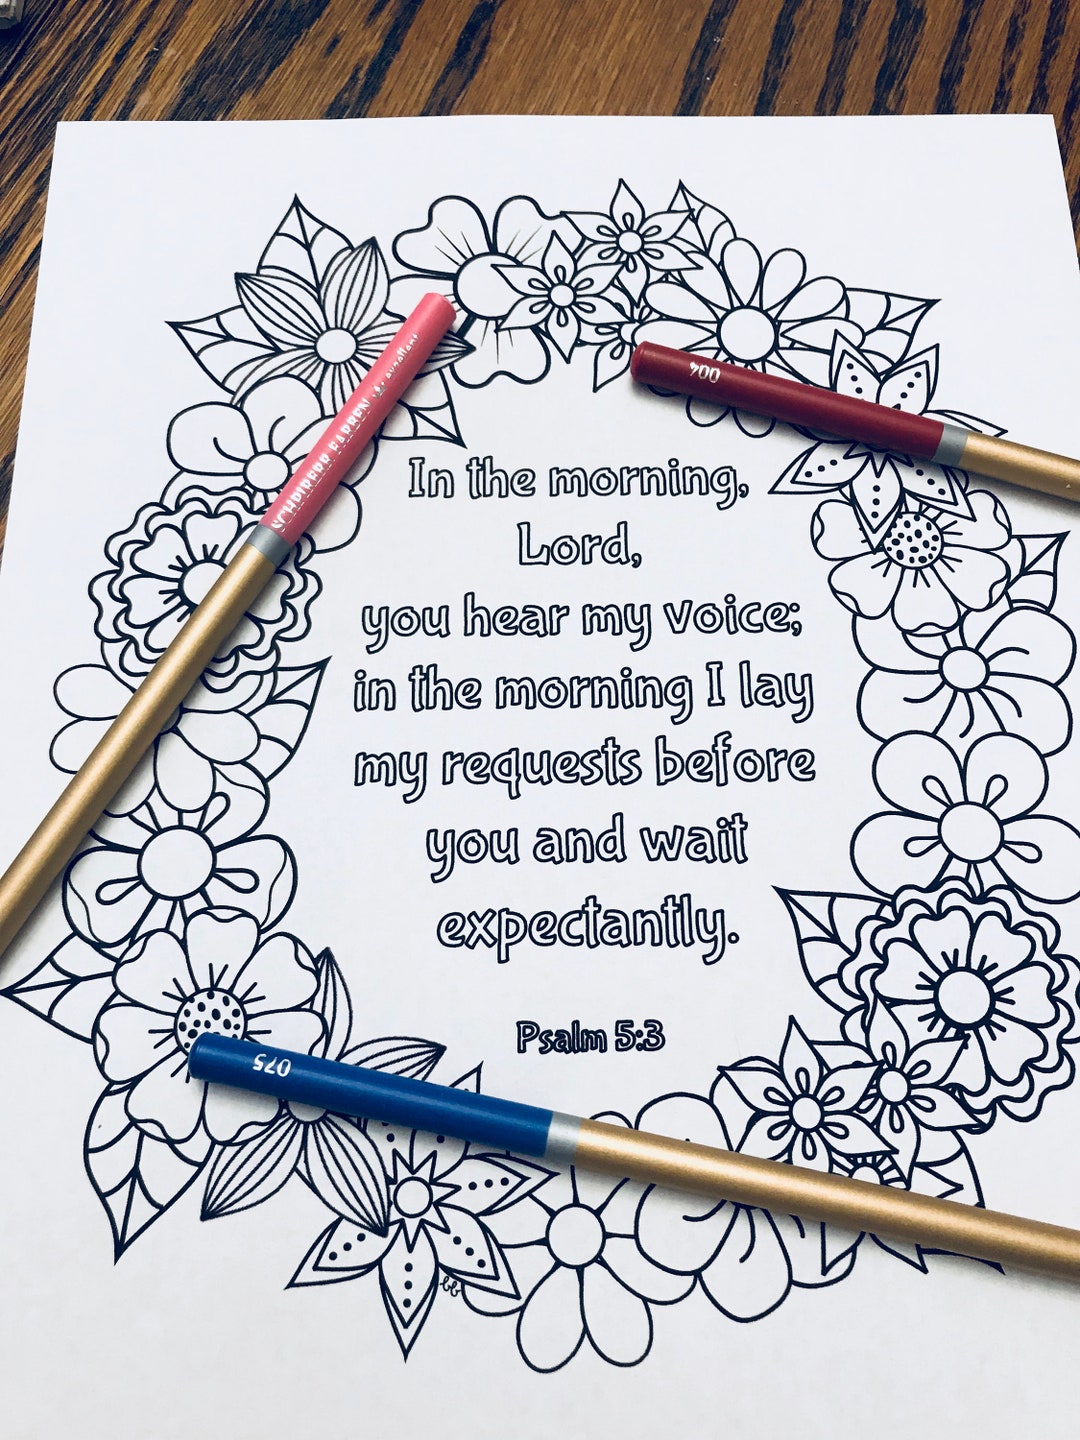 In the morning,
Lord,
you hear my voice;
in the morning I lay
my requests before
you and wait
expectantly.
Psalm 5:3
SCHPIRERR FARBEN
004
075
bb